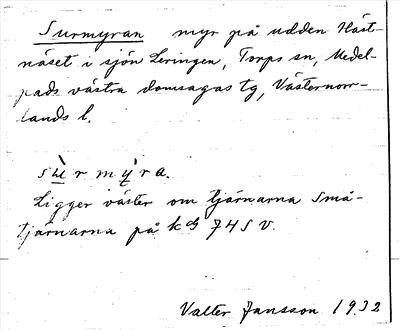 Surmyran myr på udden Häst-
näset i sjön Leringen, Torps sn, Medel-
pads västra domsagas tg, Västernorr-
lands l.
sù̱rmỳ̱ra.
Ligger väster om tjärnarna Små-
tjärnarna på kbl 74 S V.
Valter Jansson 1932